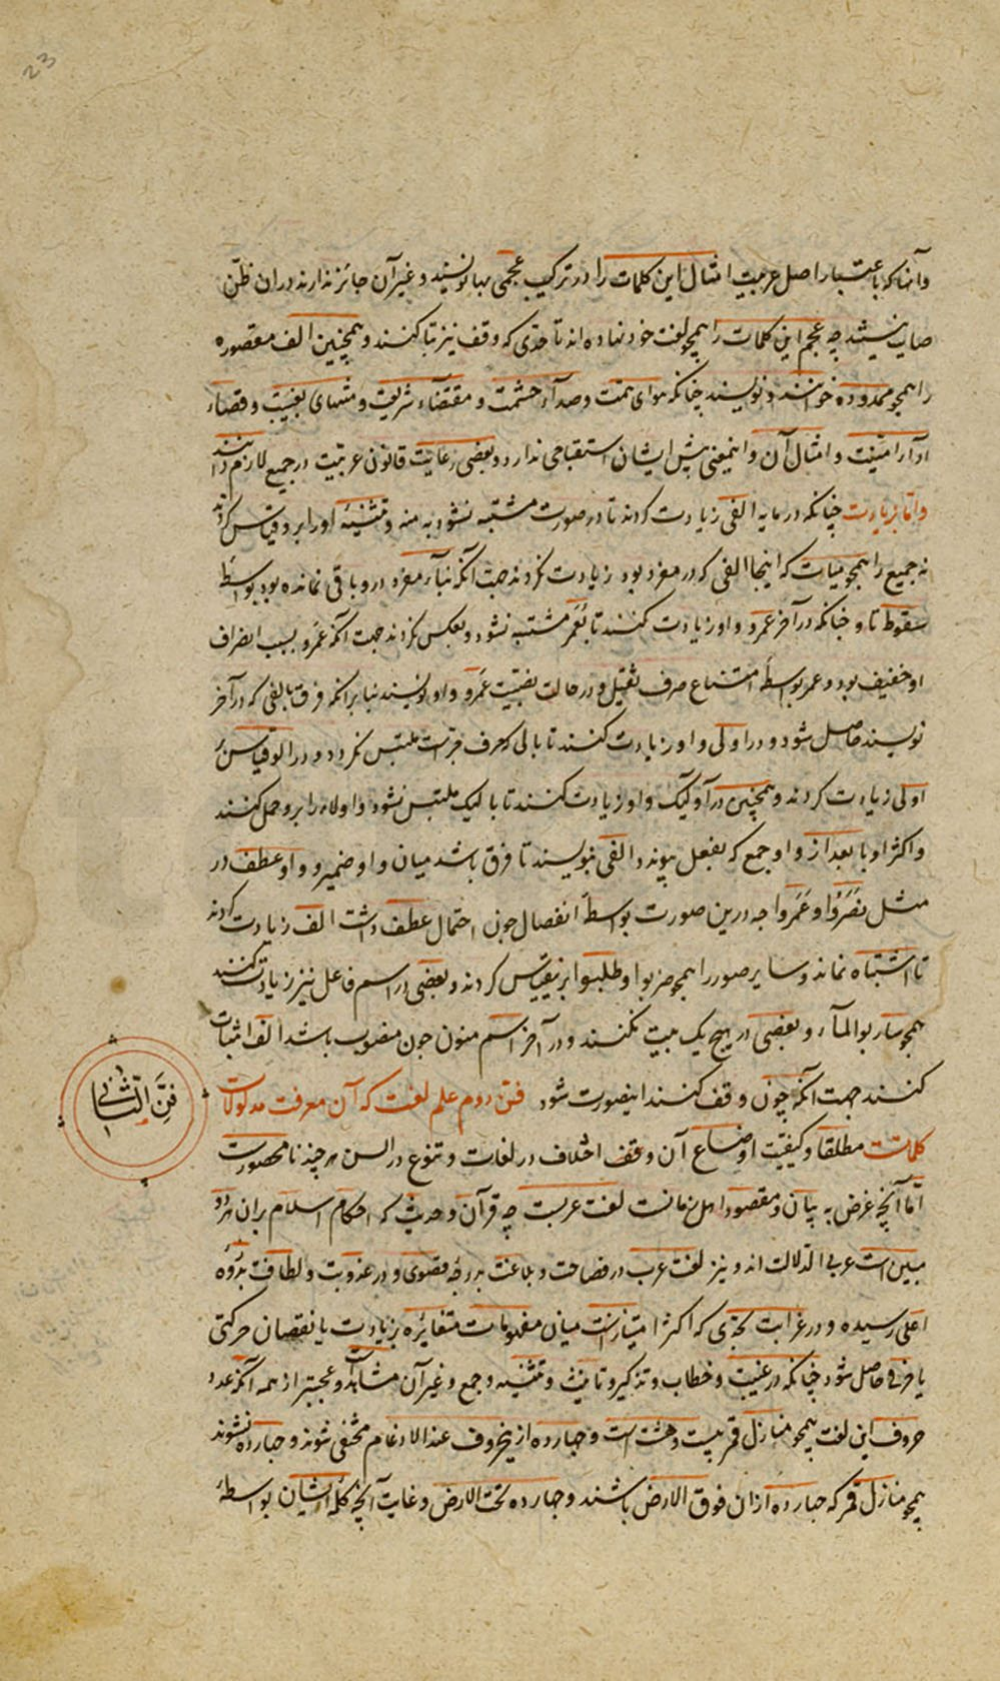 23
وآنها که باعتبار اصل عربیت امثال این کلمات را در ترکیب عجمی بها نویسند و غیر آن جائز ندارند در ان ظن
صایب نیستند چه عجم این کلمات را همچو لغت خود نهاده اند تا حدی که وقف نیز بتا کنند و همچنین الف مقصوره
را همچو ممدوده خوانند و نویسند چنانکه هوای همت و صدآء حشمت و مقتضاء شریعت و منتهای بغیت و قصاء
ادآء امنیت و امثال آن و اینمعنی پیش ایشان استقباحی ندارد و بعضی رعایت قانون عربیت در جمیع لازم دانند
واما بزیادت چنانکه در مایه الفی زیادت کردند تا در صورت مشتبه نشود به منه و تثنیهٔ او را برو قیاس کردند
نه جمیع را همچو میات که اینجا الفی که در مفرد بود زیادت نکردند جهت آنکه بناء مفرد درو باقی نمانده بود بواسطهٔ
سقوط تا و چنانکه در آخر عمرو واو زیادت کنند تا بعمر مشتبه نشود و بعکس نکردند جهت آنکه عمرو بسبب انصراف
او خفیف بود و عمر بواسطهٔ امتناع صرف ثقیل و در حالت نصبیت عمرو واو ننویسند بنا برانکه فرق بالفی که در آخر
نویسند حاصل شود و در اولی واو زیادت کنند تا بالی که حرف جرست ملتبس نگردد و در الو قیاس
اولی زیادت کردند و همچنین در آولیک واو زیادت کنند تا بالیک ملتبس نشود و اولاء را برو حمل کنند
و اکثر ادبا بعد از واو جمع که بفعل پیوندد الفی بنویسند تا فرق باشد میان واو ضمیر و واو عطف در
مثل نصروا و عمروا چه درین صورت بواسطهٔ انفصال چون احتمال عطف داشت الف زیادت کردند
تا اشتباه نماند و سایر صور را همچو ضربوا و طلبوا برین قیاس کردند و بعضی در اسم فاعل نیز زیادت کنند
همچو شاربوا المآء و بعضی در هیچ یک ثبت نکنند و در آخر اسم منون چون منصوب باشد الف اثبات
کنند جهت آنکه چون وقف کنند اینصورت شود فن دوم علم لغت که آن معرفت مدلولات
فن الثانی
کلمات است مطلقا و کیفیت اوضاع آن و وقف اختلاف در لغات و تنوع در السن هر چند نامحصورست
اما آنچه غرض به بیان و مقصود اهل زمانست لغت عربست چه قرآن و حدیث که احکام اسلام بران هر دو
مبین است عربی الدلالت اند و نیز لغت عرب در فصاحت و بلاغت بدرجهٔ قصوی و در عذوبت و لطافت بذروهٔ
اعلی رسیده و در غرابت بحدی که اکثر امتیازات میان مفهومات متغایره بزیادت یا نقصان حرکتی
یا حرفی حاصل شود چنانکه در غیبت و خطاب و تذکیر و تانیث و تثنیه و جمع و غیر آن مشاهدست و عجبتر از همه آنکه عدد
حروف این لغت همچو منازل قمر بیست و هشت است و چهارده ازین حروف عند الادغام مختفی شوند و چهارده نشوند
همچو منازل قمر که چهارده از ان فوق الارض باشند و چهارده تحت الارض و غایت آنچه کلمهٔ ایشان بواسطهٔ